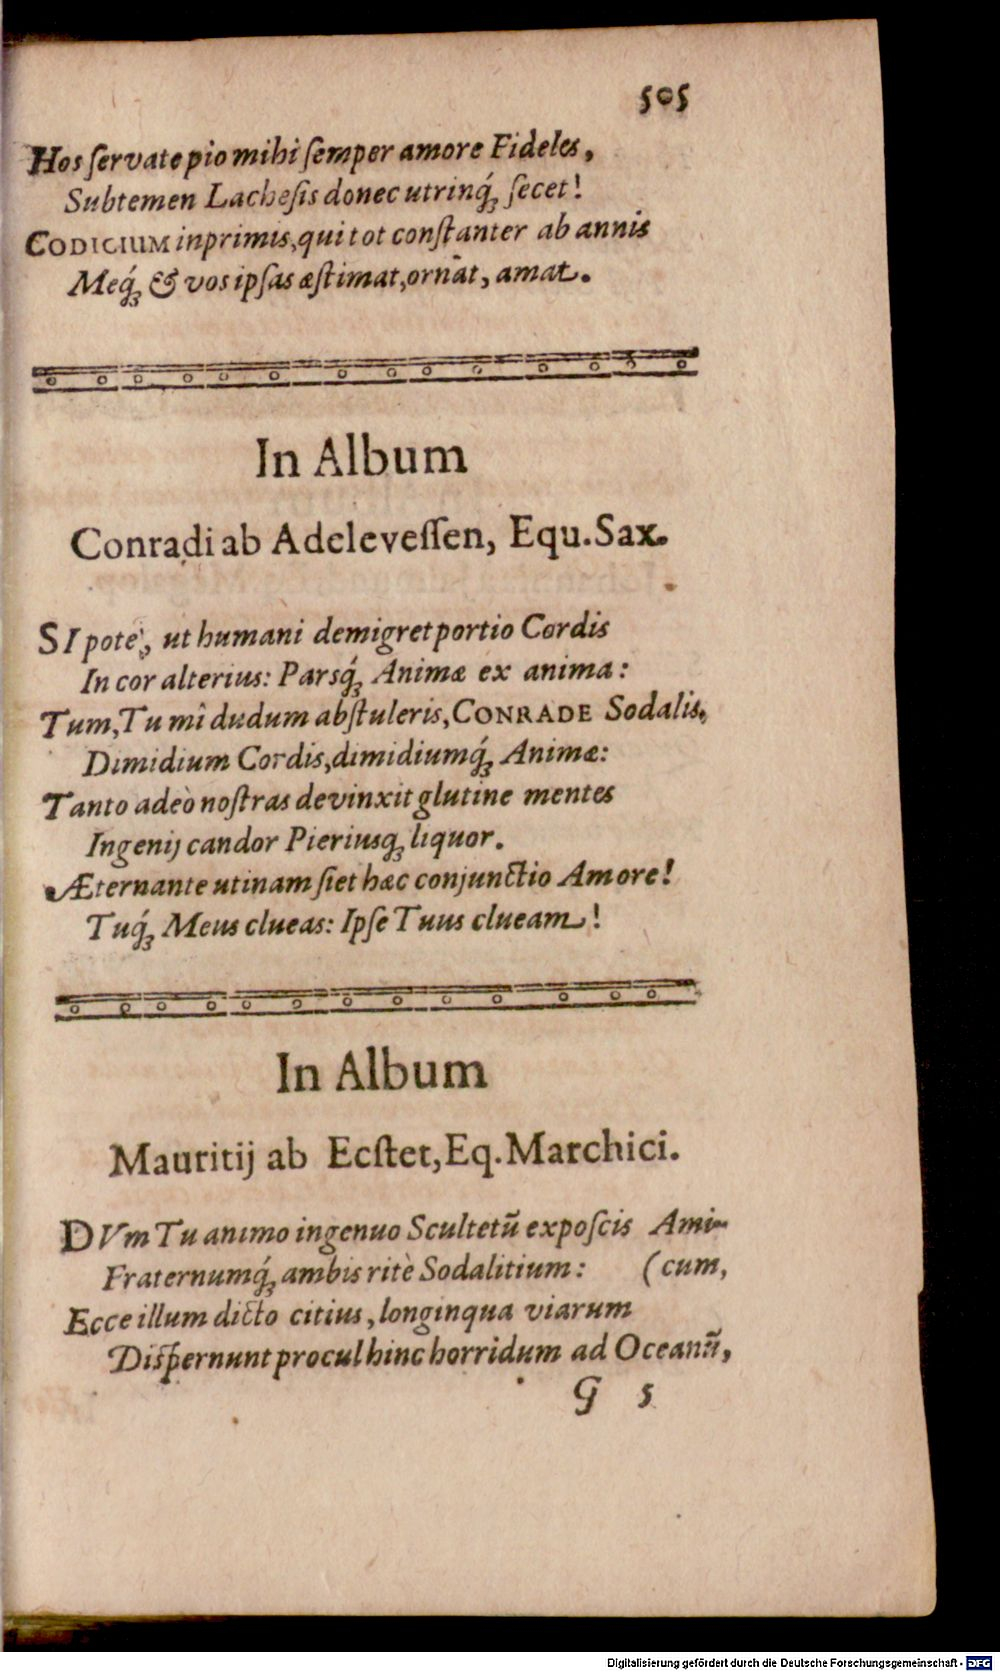 505
Hos ſervate pio mihi ſemper amore Fideles,
Subtemen Lacheſis donec utrinq́ꝫ ſecet!
CODICIUM inprimis, qui tot conſtanter ab annis
Meq́ꝫ & vos ipſas æſtimat, ornat, amat.
In Album
Conradi ab Adeleveſſen, Equ. Sax.
SI pote, ut humani demigret portio Cordis
In cor alterius: Parsq́ꝫ Animæ ex anima:
Tum, Tu mî dudum abſtuleris, CONRADE Sodalis,
Dimidium Cordis, dimidiumq́ꝫ Animæ:
Tanto adeò noſtras devinxit glutine mentes
Ingenij candor Pieriusqꝫ liquor.
Æternante utinam ſiet hæc conjunctio Amore!
Tuq́ꝫ Meus clueas: Ipſe Tuus clueam!
In Album
Mauritij ab Ecſtet, Eq. Marchici.
DVm Tu animo ingenuo Scultetũ expoſcis Ami-
Fraternumq́ꝫ ambis ritè Sodalitium: (cum,
Ecce illum dicto citius, longinqua viarum
Diſpernunt procul hinc horridum ad Oceanũ,
G 5
Digitalisierung gefördert durch die Deutsche Forschungsgemeinschaft - DFG